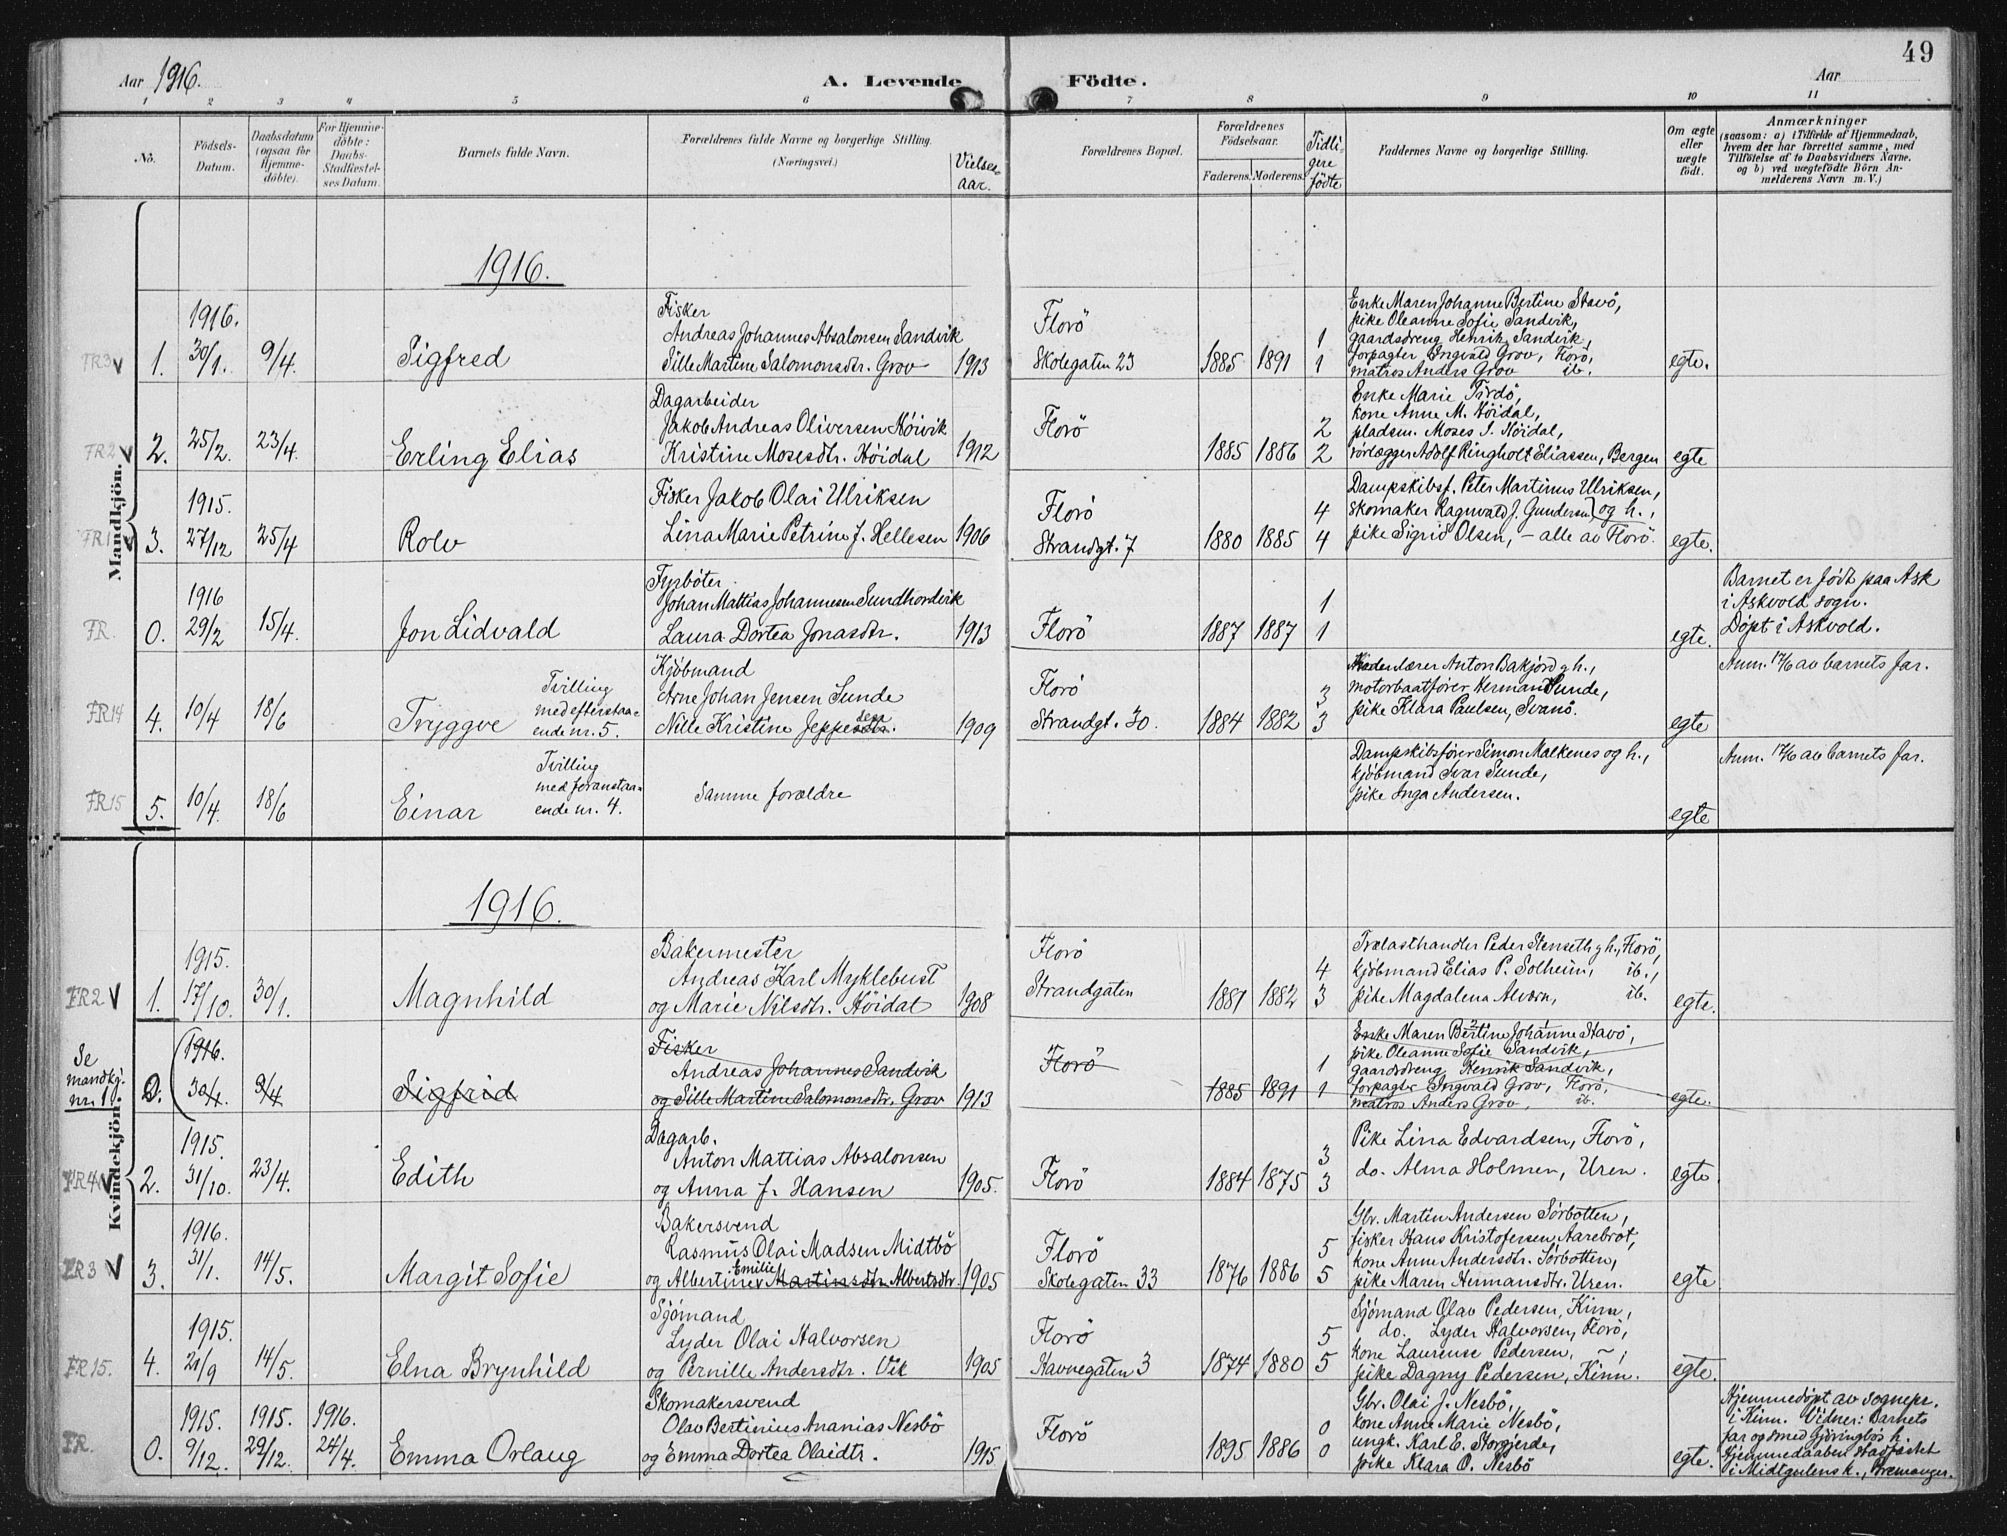 49
Aar 1916.
A. Levende Födte.
Aar
1 2 3 4 5 6 7 8 9 10 11
No.
Födsels-
Datum.
Daabsdatum
(ogsaa for
Hjemme-
döbte).
For Hjemme-
döbte:
Daabs-
Stadfæstel-
ses Datum.
Barnets fulde Navn.
Forældrenes fulde Navne og borgerlige Stilling.
(Næringsvei.)
Vielses-
aar.
Forældrenes Bopæl.
Forældrenes
Födselsaar.
Faderens. Moderens.
Tidli-
gere
fødte
Faddernes Navne og borgerlige Stilling.
Om ægte
eller
uægte
födt.
Anmærkninger
(saasom: a) i Tilfælde af Hjemmedaab,
hvem der har forrettet samme, med
Tilföielse af to Daabsvidners Navne.
og b) ved uægtefödte Börn An-
melderens Navn m. V.)
Mandkjön.
1916.
FR3 v 1.
1916.
30/1.
9/4.
Sigfred
Fisker
Andreas Johannes Absalonsen Sandvik
Sille Martine Salomonsdtr. Grov
1913
Florö
Skolegaten 23
1885 1891
1
1
Enke Maren Johanne Bertine Stavö,
pike Oleanne Sofie Sandvik,
gaardsdreng Henrik Sandvik,
forpagter Ingvald Grov, Florö,
matros Anders Grov ib.
egte.
FR2 v 2.
25/2.
23/4.
Erling Elias
Dagarbeider
Jakob Andreas Oliversen Höivik
Kristine Mosesdtr. Höidal
1912
Florö
1885 1886
2
2
Enke Marie Tirdö,
kone Anne M. Höidal,
pladsm. Moses J. Höidal,
rörlægger Adolf Ringholt Eliassen, Bergen
egte
FR1 v 3.
1915.
27/12
25/4
Rolv
Fisker Jakob Olai Ulriksen
Lina Marie Petrine J. Hellesen
1906
Florö
Strandgt. 7
1880 1885
4
4
Dampskibsf. Peter Martinus Ulriksen,
skomaker Ragnvald J. Gundersen og h.,
pike Sigrid Olsen, – alle av Florö.
egte.
FR. 0.
1916
29/2
15/4.
Jon Lidvald
Fyrböter
Johan Mattias Johannesen Sundhordvik
Laura Dortea Jonasdtr.
1913
Florö
1887 1887
1
1
egte.
Barnet er födt paa Ask
i Askvold sogn.
Döpt i Askvold.
FR14 4.
10/4
18/6
Tryggve
Tvilling
med efterstaa-
ende nr. 5.
Kjöbmand
Arne Johan Jensen Sunde
Nille Kristine Jeppesen.
1909
Florö
Strandgt. 30.
1884 1882
3
3
lærer Anton Bakjord og h.,
motorbaatförer Herman Sunde,
pike Klara Paulsen, Svanö.
egte
Anm. 17/6 av barnets far.
FR15 5.
10/4.
18/6
Einar
Tvilling
med foranstaa-
ende nr. 4.
Samme forældre
Dampskibsförer Simon Malkenes og h.,
kjöbmand Ivar Sunde,
pike Inga Andersen.
egte
Anm. 17/6 av barnets far.
Kvindekjön.
1916.
FR2 v 1.
1915.
17/10.
30/1.
Magnhild
Bakermester
Andreas Karl Myklebust
og Marie Nilsdtr. Höidal
1908
Florö
Strandgaten
1881 1882
4
3
Trælasthandler Peder Stenseth og h., Florö,
kjöbmand Elias P. Solheim, ib.,
pike Magdalena Alværn, ib.
egte.
Se
mandkj.
nr. 1
1916.
30/1.
9/4
Sigfrid
Fisker
Andreas Johannes Sandvik
og Sille Martine Salomonsdtr. Grov
1913
Florö
1885 1891
1
1
Enke Maren Bertine Johanne Stavö,
pike Oleanne Sofie Sandvik,
gaardsdreng Henrik Sandvik,
forpagter Ingvald Grov, Florö,
matros Anders Grov, ib.
egte.
FR4 v 2.
1915.
31/10.
23/4.
Edith
Dagarb.
Anton Mattias Absalonsen
og Anna J. Hansen
1905.
Florö
1884 1875
3
3
Pike Lina Edvardsen, Florö,
do. Alma Holmen, Uren.
egte.
FR3 v 3.
1916.
31/1.
14/5.
Margit Sofie
Bakersvend
Rasmus Olai Madsen Midtbö
og Albertine Emilie Martinsdtr. Albertsdtr.
1905
Florö
Skolegaten 33
1876 1886
5
5
Gbr. Martin Andersen Sörbotten,
fisker Hans Kristofersen Aarebrot,
kone Anne Andersdtr. Sörbotten,
pike Maren Hermansdtr. Uren.
egte
FR15. 4.
1915.
21/9
14/5.
Elna Brynhild
Sjömand
Lyder Olai Halvorsen
og Pernille Andersdtr. Vik
1905
Florö
Havnegaten 3
1874 1880
5
5
Sjömand Olav Pedersen, Kinn,
do. Lyder Halvorsen, Florö,
kone Laurense Pedersen, – ,
pike Dagny Pedersen, Kinn.
egte.
FR. 0.
1915.
9/12.
1915.
29/12.
1916.
24/4.
Emma Orlaug
Skomakersvend
Olav Bertinius Ananias Nesbö
og Emma Dortea Olaidtr.
1915
Florö
1895 1886
0
0
Gbr. Olai J. Nesbö,
kone Anne Marie Nesbö,
ungk. Karl E. Storgjerde,
pike Klara O. Nesbö
egte.
Hjemmedöpt av sognepr.
i Kinn. Vidner: Barnets
far og smed Gjöringbös h.
Hjemmedaaben stadfæstet
i Midtgulens k., Bremanger.